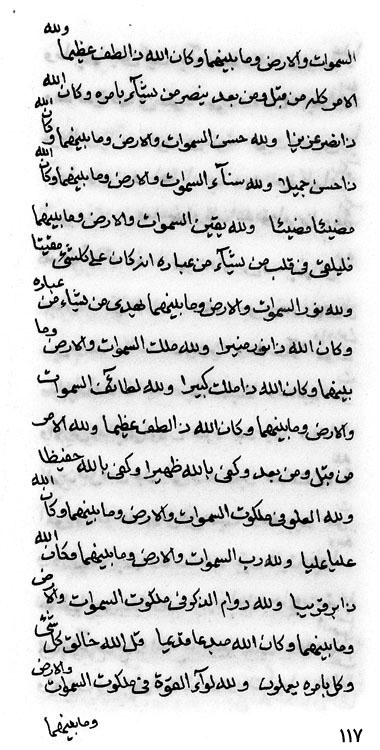 ولله
السموات والارض وما بينهما وكان الله ذا لطف عظيما
الامر كله من قبل ومن بعد ينصر من يشآء بامره وكان الله
ذا نصر عزيزا ولله حسن السموات والارض وما بينهما وكان الله
ذا حسن جميلا ولله سنآء السموات والارض وما بينهما وكان الله
مضيئا مضيئا ولله يقين السموات والارض وما بينهما
فليلقى فى قلب من يشآء من عباده انه كان على كلشئ مقيتا
ولله نور السموات والارض وما بينهما يهدى من يشاء من عباده
وكان الله ذا نور منيرا ولله ملك السموات والارض وما
بينهما وكان الله ذا ملك كبيرا ولله لطائف السموات
والارض وما بينهما وكان الله ذا لطف عظيما ولله الامر
من قبل ومن بعد وكفى بالله ظهيرا وكفى بالله حفيظا
ولله العلو فى ملكوت السموات والارض وما بينهما وكان الله
عليا عليا ولله رب السموات والارض وما بينهما فكان الله
ذا بر قريبا ولله دوام الذكر فى ملكوت السموات والارض
وما بينهما وكان الله مبدعا قديما قل الله خالق كل شئ
وكل بامره يعملون ولله لوآء القوة فى ملكوت السموات والارض
وما بينهما
١١٧